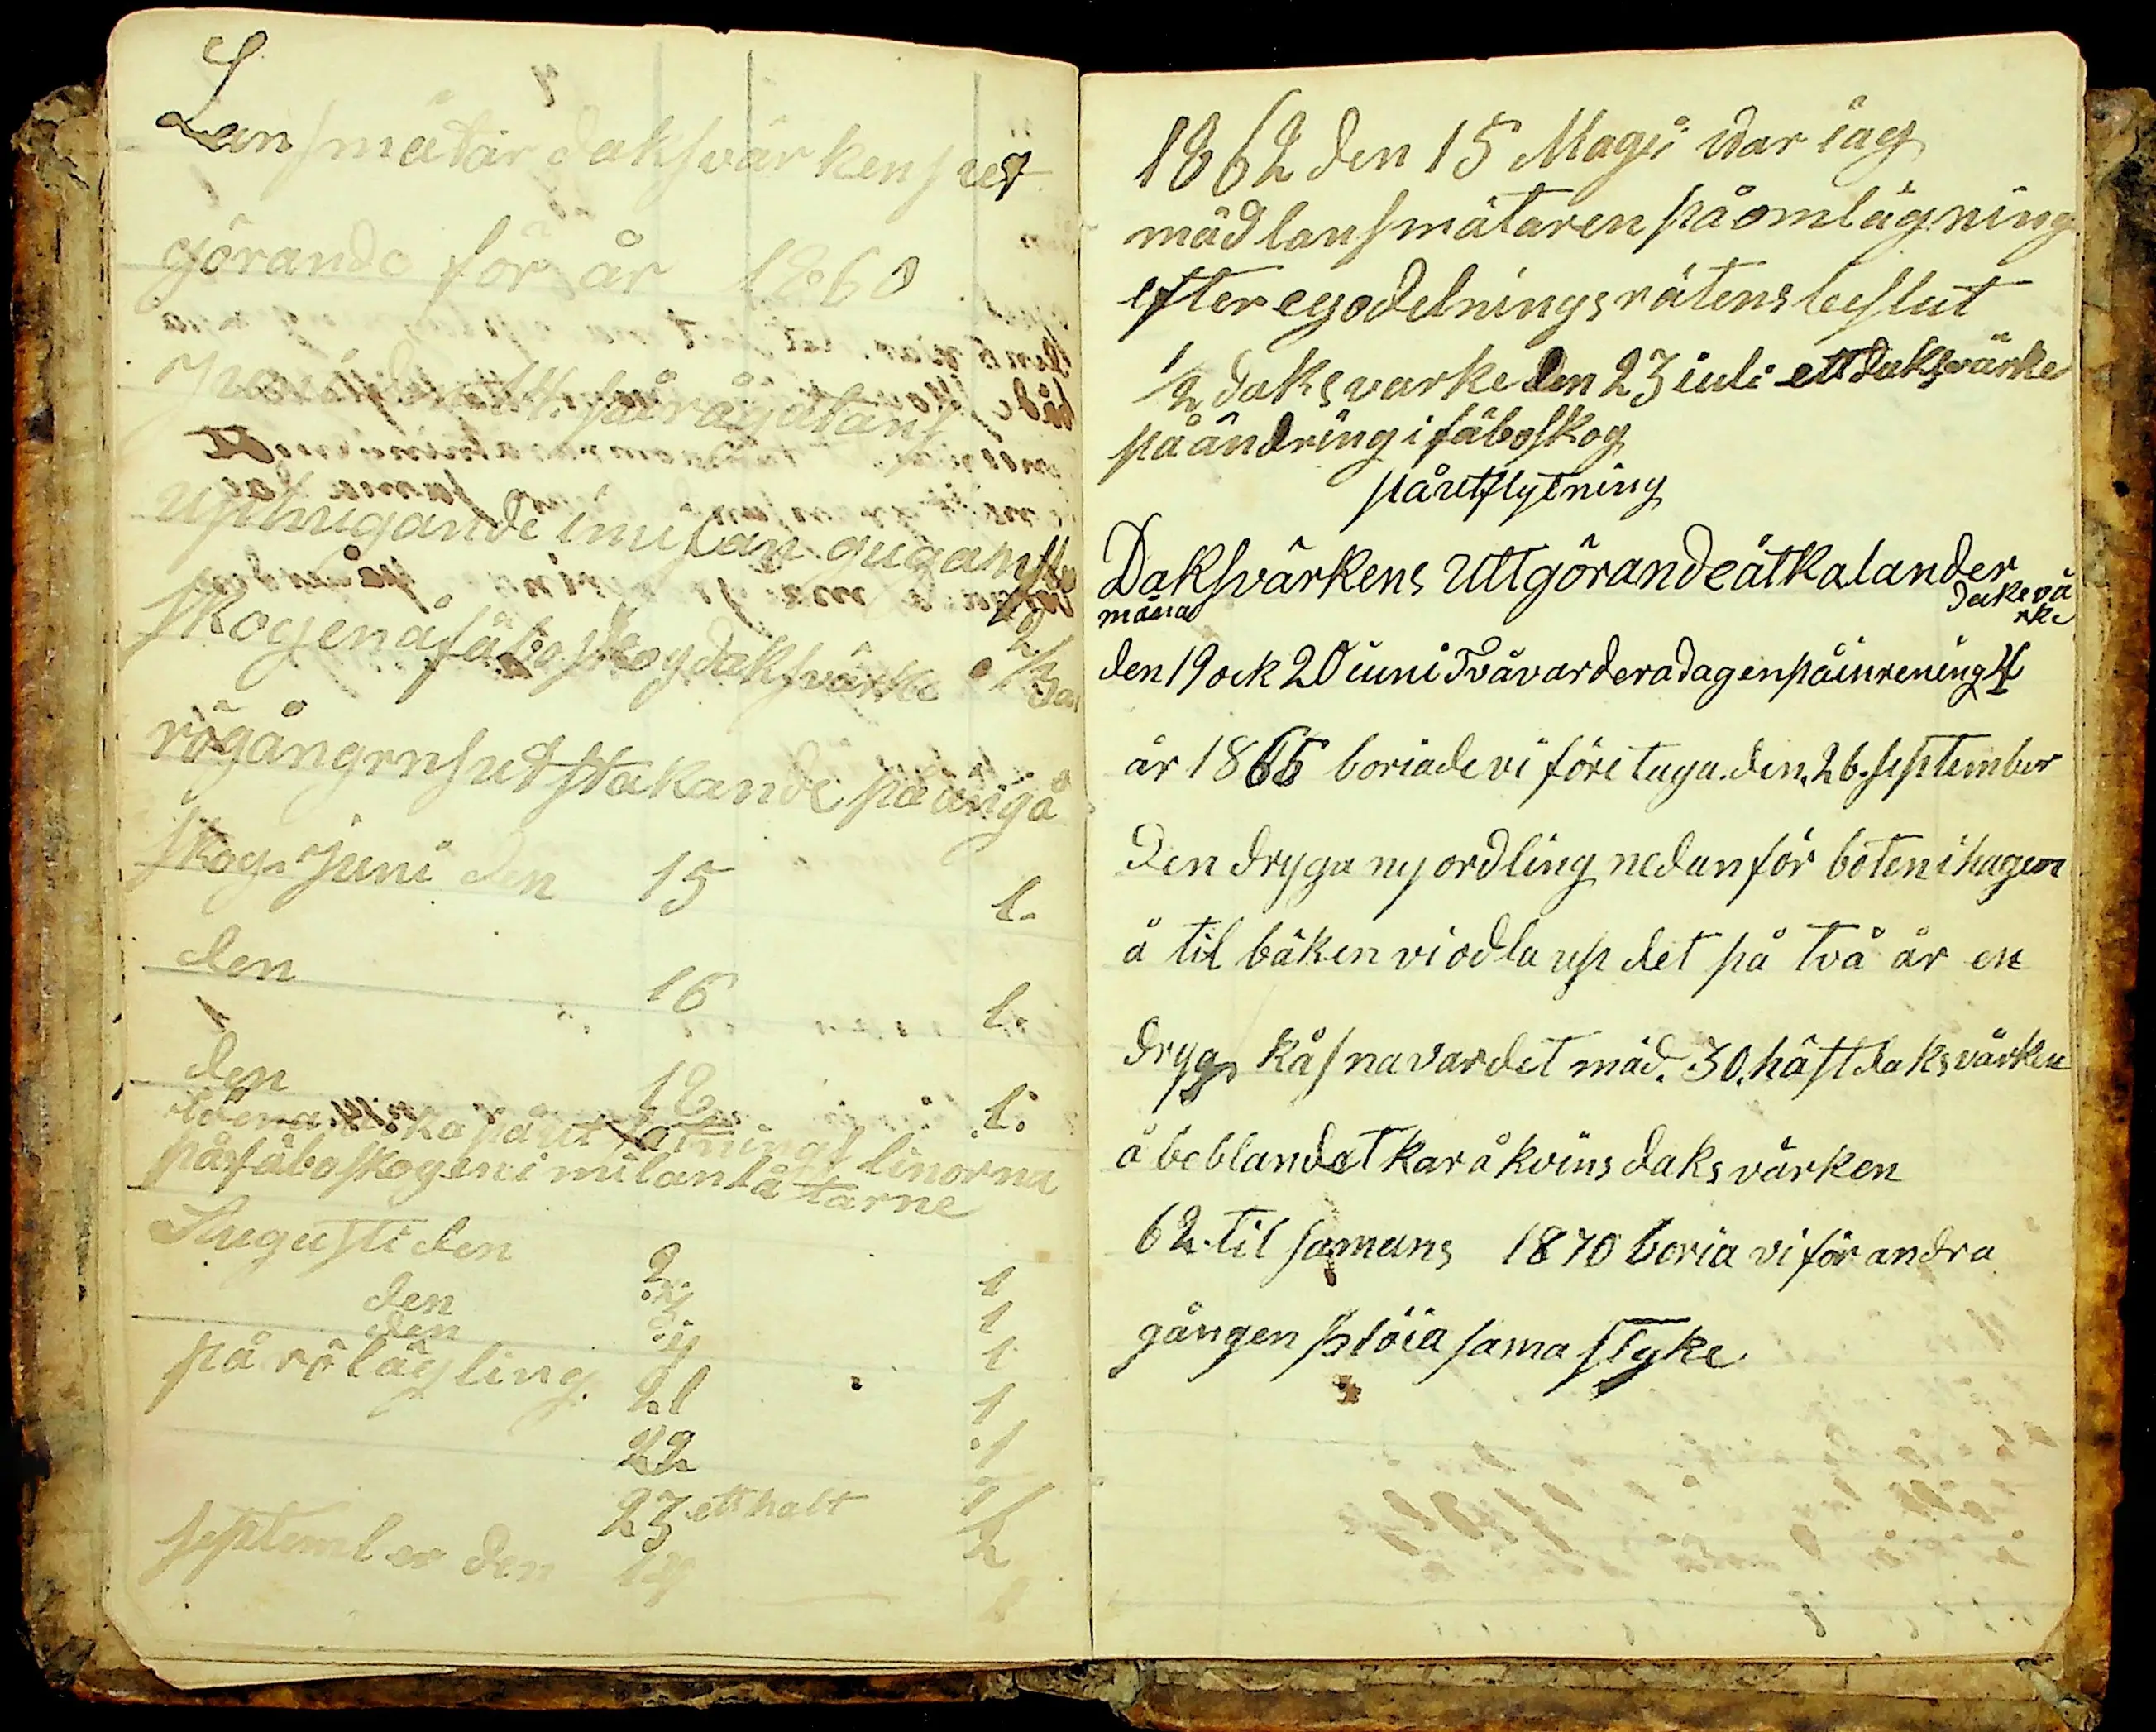 Lansmätar daksvärkens ut
görande för år 1860
uphugande imilan
skogen å fäboskog daksvärke 2/3
rögångens utstakande på
skog. juni den 15 1.
den 16 1.
den 18 1.
linorna
på fäboskogen i milan låtarne
Augusti den 2 1
den 3 1
den 4 1
på röläggling. 21 1
22 1
23 ett halt 1/2
september den 14 1
1862 den 15 Magii war iag
mäd lansmätaren på omlägning
efter egodelningsrätens beslut
1/2 daksvarke den 23 iuli ett daksvärke
på ändring i fäboskog
på utflytning
Daksvärkens Uttgörande ät kalander
månad daksvä
rke
den 19 ock 20 iuni Två vardera dagen på inrening 4
år 1865 boriade vi företaga den 26 september
den dryga ny ordling nedanför boten i hagen
å til bäken vi odla up det på två år en
dryg kåsna var det mäd. 30. häst daksvärken
å beblandet kar å kvins daksvärken
62 til samans 1870 boria vi för andra
gången plöia sama styke